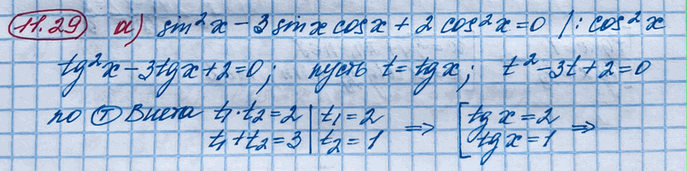 11.29 а) sin²x - 3 sinx cosx + 2 cos²x = 0 /: cos²x
tg²x - 3tgx + 2 = 0; пусть t = tgx; t² - 3t + 2 = 0
по Т Виета t₁·t₂ = 2 | t₁ = 2 ⇒ [ tgx = 2
t₁ + t₂ = 3 | t₂ = 1 tgx = 1 ⇒